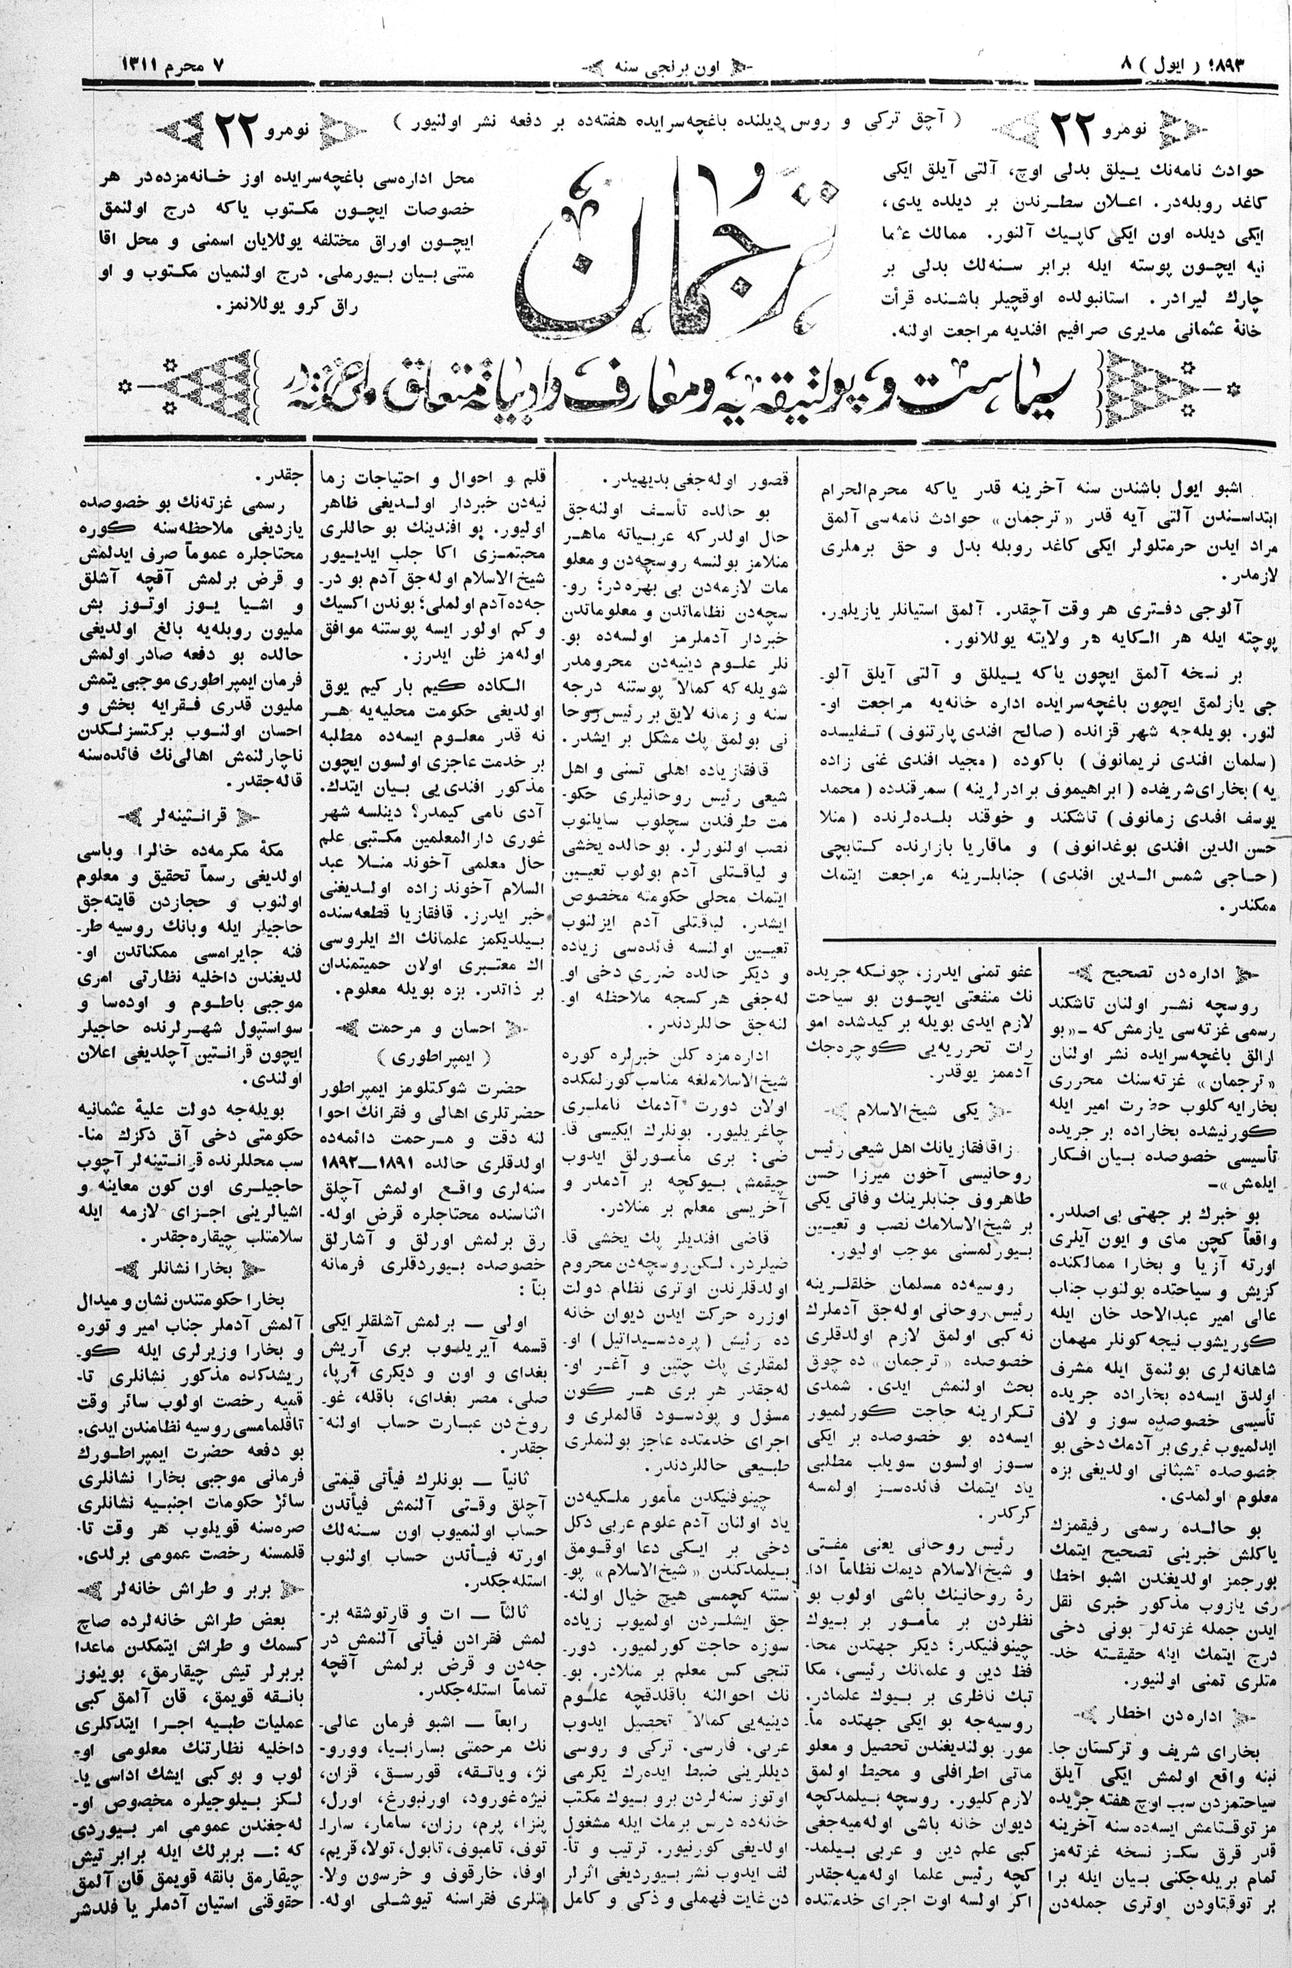 ١٨٩٣ ( ايول ) ٨
اون برنجی سنه
٧ محرم ١٣١١
نومرو ٢٢
( آچق ترکی و روس دیلنده باغچه‌سرایده هفته‌ده بر دفعه نشر اولنیور )
نومرو ٢٢
حوادث نامه‌نك ییلق بدلی اوچ، آلتی آیلق ایکی
کاغد روبله‌در. اعلان سطرندن بر دیلده یدی،
ایکی دیلده اون ایکی کاپیك آلنور. ممالك عثما
نیه ایچون پوسته ایله برابر سنه‌لك بدلی بر
چارك لیرادر. استانبولده اوقچیلر باشنده قرأت
خانهٔ عثمانی مدیری صرافیم افندیه مراجعت اولنه.
ترجمان
محل اداره‌سی باغچه‌سرایده اوز خانه‌مزده‌در هر
خصوصات ایچون مکتوب یاکه درج اولنمق
ایچون اوراق مختلفه یوللایان اسمنی و محل اقا
متنی بیان بیورملی. درج اولنمیان مکتوب و او
راق کرو یوللانمز.
سیاست و پولتیقه‌یه و معارف و ادبیاته متعلق
اشبو ایول باشندن سنه آخرینه قدر یاکه محرم‌الحرام
ابتداسندن آلتی آیه قدر «ترجمان» حوادث نامه‌سی آلمق
مراد ایدن حرمتلولر ایکی کاغد روبله بدل و حق برملری
لازمدر.
آلوجی دفتری هر وقت آچقدر. آلمق استیانلر یازیلور.
پوچته ایله هر الکایه هر ولایته یوللانور.
بر نسخه آلمق ایچون یاکه ییللق و آلتی آیلق آلو-
جی یازلمق ایچون باغچه‌سرایده اداره خانه‌یه مراجعت او-
لنور. بویله‌جه شهر قزانده (صالح افندی پارتنوف) تفلیسده
(سلمان افندی نریمانوف) باکوده (مجید افندی غنی زاده
یه) بخارای‌شریفده (ابراهیموف برادرلرینه) سمرقندده (محمد
یوسف افندی زمانوف) تاشکند و خوقند بلده‌لرنده (منلا
حسن الدین افندی بوغدانوف) و ماقاریا بازارنده کتابچی
(حاجی شمس الدین افندی) جنابلرینه مراجعت ایتمك
ممکندر.
اداره‌دن تصحیح
روسچه نشر اولنان تاشکند
رسمی غزته‌سی یازمش‌که –«بو
ارالق باغچه‌سرایده نشر اولنان
«ترجمان» غزته‌سنك محرری
بخارایه کلوب حضرت امیر ایله
کورنیشده بخاراده بر جریده
تأسیسی خصوصده بیان افکار
ایله‌ش»–
بو خبرك بر جهتی بی اصلدر.
واقعاً کچن مای و ایون آیلری
اورته آزیا و بخارا ممالکنده
کزیش و سیاحتده بولنوب جناب
عالی امیر عبدالاحد خان ایله
کوریشوب نیجه کونلر مهمان
شاهانه‌لری بولنمق ایله مشرف
اولدق ایسه‌ده بخاراده جریده
تأسیسی خصوصده سوز و لاف
ایدلمیوب غیری بر آدمك دخی بو
خصوصده تشبثاتی اولدیغی بزه
معلوم اولمدی.
بو حالده رسمی رفیقمزك
یاکلش خبرینی تصحیح ایتمك
بورجمز اولدیغندن اشبو اخطا
ری یازوب مذکور خبری نقل
ایدن جمله غزته‌لر بونی دخی
درج ایتمك ایله حقیقته خد-
متلری تمنی اولنیور.
اداره‌دن اخطار
بخارای شریف و ترکستان جا-
نبنه واقع اولمش ایکی آیلق
سیاحتمزدن سبب اوچ هفته جریده
مز توقتامش ایسه‌ده سنه آخرینه
قدر قرق سکز نسخه غزته‌مز
تمام بریله‌جکنی بیان ایله برا
بر توقتاودن اوتری جمله‌دن
عفو تمنی ایدرز، چونکه جریده
نك منفعتی ایچون بو سیاحت
لازم ایدی بویله بر کیدشده امو
رات تحرریه‌یی کوچره‌جك
آدممز یوقدر.
یکی شیخ‌الاسلام
زاقافقازیانك اهل شیعی رئیس
روحانیسی آخون میرزا حسن
طاهروف جنابلرینك وفاتی یکی
بر شیخ‌الاسلامك نصب و تعیین
بیورلمسنی موجب اولیور.
روسیه‌ده مسلمان خلقلرینه
رئیس روحانی اوله‌جق آدملرك
نه کبی اولمق لازم اولدقلری
خصوصده «ترجمان» ده چوق
بحث اولنمش ایدی. شمدی
تکرارینه حاجت کورلمیور
ایسه‌ده بو خصوصده بر ایکی
سوز اولسون سویلب مطلبی
یاد ایتمك فائده‌سز اولمسه
کرکدر.
رئیس روحانی یعنی مفتی
و شیخ‌الاسلام دیمك نظاماً ادا-
رهٔ روحانینك باشی اولوب بو
نظردن بر مأمور بر بیوك
چینوفنیکدر؛ دیکر جهتدن محا-
فظ دین و علمانك رئیسی، مکا
تبك ناظری بر بیوك علمادر.
روسیه‌جه بو ایکی جهتده مأ-
مور بولندیغندن تحصیل و معلو
ماتی اطرافلی و محیط اولمق
لازم کلیور. روسچه بیلمدکچه
دیوان خانه باشی اوله‌میه‌جغی
کبی علم دین و عربی بیلمد-
کچه رئیس علما اوله‌میه‌جقدر
اکر اولسه اوت اجرای خدمتنده
قصور اوله‌جغی بدیهیدر.
بو حالده تأسف اولنه‌جق
حال اولدرکه عربیاته ماهر
منلامز بولنسه روسچه‌دن و معلو
مات لازمه‌دن بی بهره‌در؛ رو-
سچه‌دن نظاماتدن و معلوماتدن
خبردار آدملرمز اولسه‌ده بو-
نلر علوم دینیه‌دن محرومدر
شویله‌که کمالاً پوستنه درجه
سنه و زمانه لایق بر رئیس روحا
نی بولمق پك مشکل بر ایشدر.
قافقازیاده اهلی تسنی و اهل
شیعی رئیس روحانیلری حکو-
مت طرفندن سچلوب سایلانوب
نصب اولنورلر. بو حالده یخشی
و لیاقتلی آدم بولوب تعیین
ایتمك محلی حکومته مخصوص
ایشدر. لیاقتلی آدم ایزلنوب
تعیین اولنسه فائده‌سی زیاده
و دیکر حالده ضرری دخی او-
له‌جغی هر کسجه ملاحظه او-
لنه‌جق حاللردندر.
اداره‌مزه کلن خبرلره کوره
شیخ‌الاسلاملغه مناسب کورلمکده
اولان دورت آدمك ناملری
چاغریلیور. بونلرك ایکیسی قا-
ضی؛ بری مأمورلق ایدوب
چیقمش بیوکچه بر آدمدر و
آخریسی معلم بر منلادر.
قاضی افندیلر پك یخشی قا-
ضیلردر، لکن روسچه‌دن محروم
اولدقلرندن اوتری نظام دولت
اوزره حرکت ایدن دیوان خانه
ده رئیس (پره‌دسیداتیل) او-
لمقلری پك چتین و آغر او-
له‌جقدر هر بری هر کون
مسؤل و پودسود قالملری و
اجرای خدمتده عاجز بولنملری
طبیعی حاللردندر.
چینوفنیکدن مأمور ملکیه‌دن
یاد اولنان آدم علوم عربی دکل
دخی بر ایکی دعا اوقومق
بیلمدکندن «شیخ‌الاسلام» پو-
ستنه کچمسی هیچ خیال اولنه-
جق ایشلردن اولمیوب زیاده
سوزه حاجت کورلمیور. دور-
تنجی کس معلم بر منلادر. بو-
نك احوالنه باقلدقچه علوم
دینیه‌یی کمالاً تحصیل ایدوب
عربی، فارسی، ترکی و روسی
دیللرینی ضبط ایده‌رك یکرمی
اوتوز سنه‌لردن برو بیوك مکتب
خانه‌ده درس برمك ایله مشغول
اولدیغی کورنیور. ترتیب و تأ-
لف ایدوب نشر بیوردیغی اثرلر
دن غایت فهملی و ذکی و کامل
قلم و احوال و احتیاجات زما
نیه‌دن خبردار اولدیغی ظاهر
اولیور. بو افندینك بو حاللری
محبتمزی اکا جلب ایدییور
شیخ‌الاسلام اوله‌جق آدم بو در-
جه‌ده آدم اولملی؛ بوندن اکسیك
و کم اولور ایسه پوستنه موافق
اوله‌مز ظن ایدرز.
الکاده کیم بار کیم یوق
اولدیغی حکومت محلیه‌یه هر
نه قدر معلوم ایسه‌ده مطلبه
بر خدمت عاجزی اولسون ایچون
مذکور افندی‌یی بیان ایتدك.
آدی نامی کیمدر؟ دینلسه شهر
غوری دارالمعلمین مکتبی علم
حال معلمی آخوند منلا عبد
السلام آخوند زاده اولدیغنی
خبر ایدرز. قافقازیا قطعه‌سنده
بیلدیکمز علمانك اك ایلروسی
اك معتبری اولان حمیتمندان
بر ذاتدر. بزه بویله معلوم.
احسان و مرحمت
(ایمپراطوری)
حضرت شوکتلومز ایمپراطور
حضرتلری اهالی و فقرانك احوا
لنه دقت و مرحمت دائمه‌ده
اولدقلری حالده ١٨٩١—١٨٩٢
سنه‌لری واقع اولمش آچلق
اثناسنده محتاجلره قرض اوله-
رق برلمش اورلق و آشارلق
خصوصده بیوردقلری فرمانه
بناً :
اولی — برلمش آشلقلر ایکی
قسمه آیریلوب بری آریش
بغدای و اون و دیکری آرپا،
صلی، مصر بغدای، باقله، غو-
روخ دن عبارت حساب اولنه-
جقدر.
ثانیاً — بونلرك فیأتی قیمتی
آچلق وقتی آلنمش فیأتدن
حساب اولنمیوب اون سنه‌لك
اورته فیأتدن حساب اولنوب
استله‌جکدر.
ثالثاً — ات و قارتوشقه بر-
لمش فقرادن فیأتی آلنمش در
جه‌دن و قرض برلمش آقچه
تماماً استله‌جکدر.
رابعاً — اشبو فرمان عالی-
نك مرحمتی بسارابیا، وورو-
نژ، ویاتقه، قورسق، قزان،
نیژه‌غورود، اورنبورغ، اورل،
پنزا، پرم، رزان، سامار، سارا-
توف، تامبوف، تابول، تولا، قریم،
اوفا، خارقوف و خرسون ولا-
یتلری فقراسنه تیوشلی اوله-
جقدر.
رسمی غزته‌نك بو خصوصده
یازدیغی ملاحظه‌سنه کوره
محتاجلره عموماً صرف ایدلمش
و قرض برلمش آقچه آشلق
و اشیا یوز اوتوز بش
ملیون روبله‌یه بالغ اولدیغی
حالده بو دفعه صادر اولمش
فرمان ایمپراطوری موجبی یتمش
ملیون قدری فقرایه بخش و
احسان اولنوب برکتسزلکدن
ناچارلنمش اهالی‌نك فائده‌سنه
قاله‌جقدر.
قرانتینه‌لر
مکهٔ مکرمه‌ده خالرا وباسی
اولدیغی رسماً تحقیق و معلوم
اولنوب و حجازدن قایته‌جق
حاجیلر ایله وبانك روسیه طر-
فنه جایرامسی ممکناتدن او-
لدیغندن داخلیه نظارتی امری
موجبی باطوم و اوده‌سا و
سواستپول شهرلرنده حاجیلر
ایچون قرانتین آچلدیغی اعلان
اولندی.
بویله‌جه دولت علیهٔ عثمانیه
حکومتی دخی آق دکزك منا-
سب محللرنده قرانتینه‌لر آچوب
حاجیلری اون کون معاینه و
اشیالرینی اجزای لازمه ایله
سلامتلب چیقاره‌جقدر.
بخارا نشانلر
بخارا حکومتندن نشان و میدال
آلمش آدملر جناب امیر و توره
و بخارا وزیرلری ایله کو-
ریشدکده مذکور نشانلری تا-
قمیه رخصت اولوب سائر وقت
تاقلمامسی روسیه نظامندن ایدی.
بو دفعه حضرت ایمپراطورك
فرمانی موجبی بخارا نشانلری
سائر حکومات اجنبیه نشانلری
صره‌سنه قویلوب هر وقت تا-
قلمسنه رخصت عمومی برلدی.
بربر و طراش خانه‌لر
بعض طراش خانه‌لرده صاچ
کسمك و طراش ایتمکدن ماعدا
بربرلر تیش چیقارمق، بوینوز
بانقه قویمق، قان آلمق کبی
عملیات طبیه اجرا ایتدکلری
داخلیه نظارتنك معلومی او-
لوب و بو کبی ایشك اداسی یا-
لکز بیلوجیلره مخصوص او-
له‌جغندن عمومی امر بیوردی
که :— بربرلك ایله برابر تیش
چیقارمق بانقه قویمق قان آلمق
حقوقنی استیان آدملر یا فلدشر